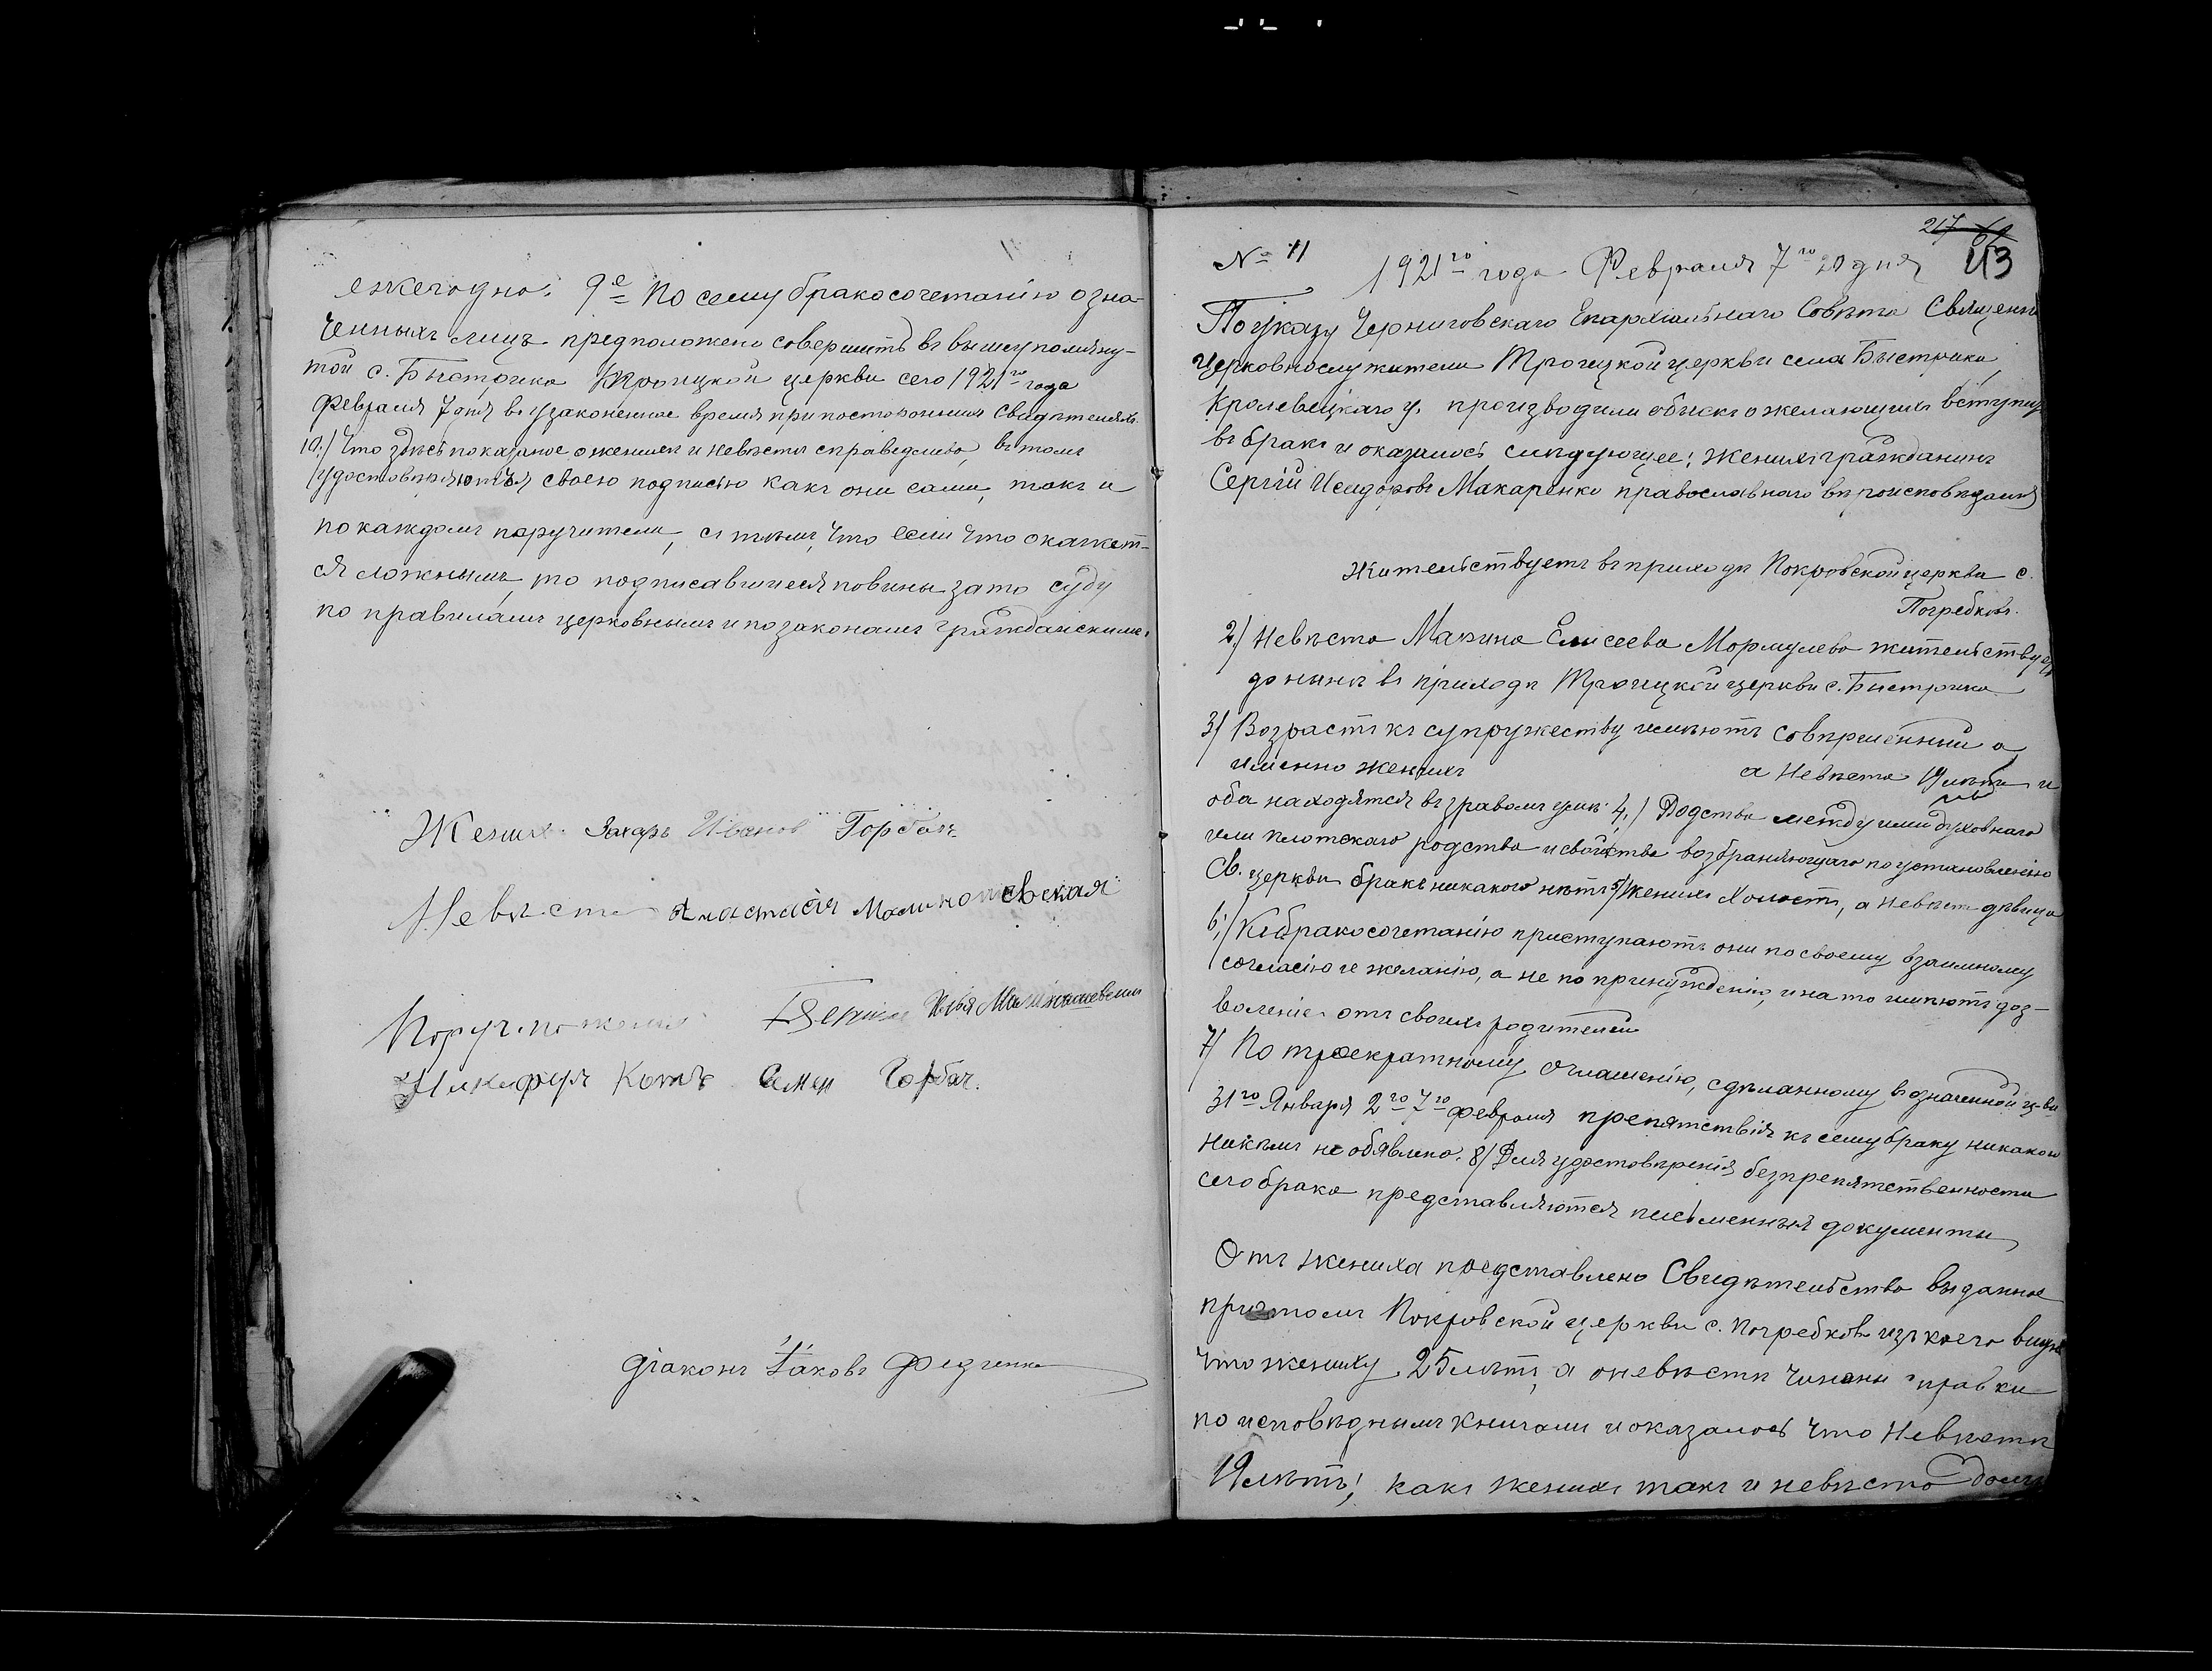 ежегодно: 9е По сему бракосочетанію озна-
ченныхъ лицъ предположено совершить въ вышеупомяну-
той с. Быстрика Троицкой церкви сего 1921го года
Февраля 7 дня въ узаконенное время при постороннихъ свидѣтеляхъ.
10.) Что здѣсь показаное о женихѣ и невѣстѣ справедливо, въ томъ
удостовѣряютъ своею подписью какъ они сами, такъ и
по каждомъ поручители, съ тѣмъ, что если что окажет-
ся ложнымъ, то подписавшиеся повины за то суду
по правиламъ церковнымъ и по законамъ гражданскимъ.
Женихъ Захаръ Ивановъ Горбачъ
Невѣста Анастасія
Поруч. по женихѣ Илья
Никифоръ Котъ Семен Горбач.
Діаконъ Іаковъ Федченко
217
43
№ 11
1921го года Февраля 7го дня
По указу Черниговскаго Епархіальнаго Совѣта Священно
церковнослужители Троицкой церкви села Быстрика
Кролевецкаго у. производили обыскъ о желающихъ вступить
въ бракъ и оказалось слѣдующее: женихъ гражданинъ
Сергій Исидоровъ Макаренко православнаго вѣроисповѣданія
жительствуетъ въ приходѣ Покровской церкви с.
Погребковъ.
2) Невѣста Марина Елисеева Мормулева жительствуетъ
до нынѣ въ приходѣ Троицкой церкви с. Быстрика
3) Возрастъ къ супружеству имѣютъ совершенный а
именно женихъ а невѣста 19 лѣтъ и
оба находятся въ здравомъ умѣ. 4.) Родства между ими духовнаго
или плотскаго родства и свойства возбраняющаго по установленію
Св. церкви бракъ никакого нѣтъ 5) женихъ холостъ, а невѣста дѣвица
6;) Къ бракосочетанію приступаютъ они по своему взаимному
согласію и желанію, а не по принужденію, и на то имѣютъ доз-
воленіе отъ своихъ родителей
7) По троекратному оглашенію, сдѣланному въ означенной ц-ви
31го Января 2го 7го февраля препятствія къ сему браку никакого
никѣмъ не обявлено. 8) Для удостовѣренія безпрепятственности
сего брака представляются письменныя документы
Отъ жениха представлено Свидѣтельство выданное
причтомъ Покровской церкви с. Погребковъ изъ коего видно
что жениху 25 лѣтъ, а о невѣстѣ чинены правки
по исповѣднымъ книгамъ и оказалось что Невѣстѣ
19 лѣтъ; какъ женихъ такъ и невѣста